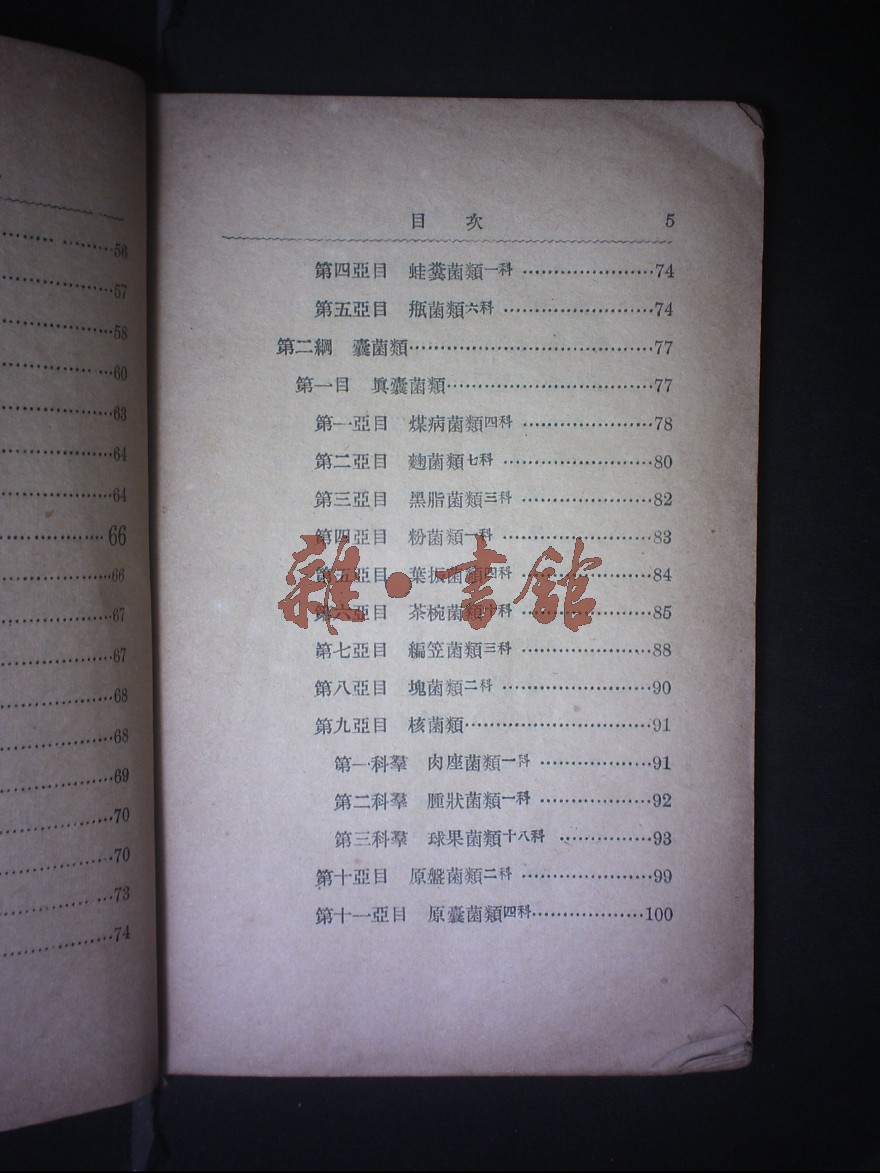 56
57
58
60
63
64
64
66
66
67
67
68
68
69
70
70
73
74
目 次 5
第四亞目 蛙糞菌類一科 ························74
第五亞目 瓶菌類六科 ···························74
第二綱 囊菌類·············································77
第一目 眞囊菌類······································77
第一亞目 煤病菌類四科 ························78
第二亞目 麴菌類七科 ···························80
第三亞目 黑脂菌類三科 ························82
第四亞目 粉菌類一科 ···························83
第五亞目 葉振菌類四科 ························84
第六亞目 茶椀菌類十科 ························85
第七亞目 編笠菌類三科 ························88
第八亞目 塊菌類二科 ···························90
第九亞目 核菌類···································91
第一科羣 肉座菌類一科 ·····················91
第二科羣 腫狀菌類一科 ·····················92
第三科羣 球果菌類十八科 ·················93
第十亞目 原盤菌類二科 ························99
第十一亞目 原囊菌類四科·····················100
雜·書館